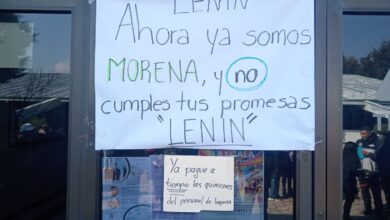 LENIN
Ahora ya somos
MORENA, y no
cumples tus promesas
"LENIN"
TLAXCALA
Ya pague a
tiempo las quincenas
del personal de limpieza